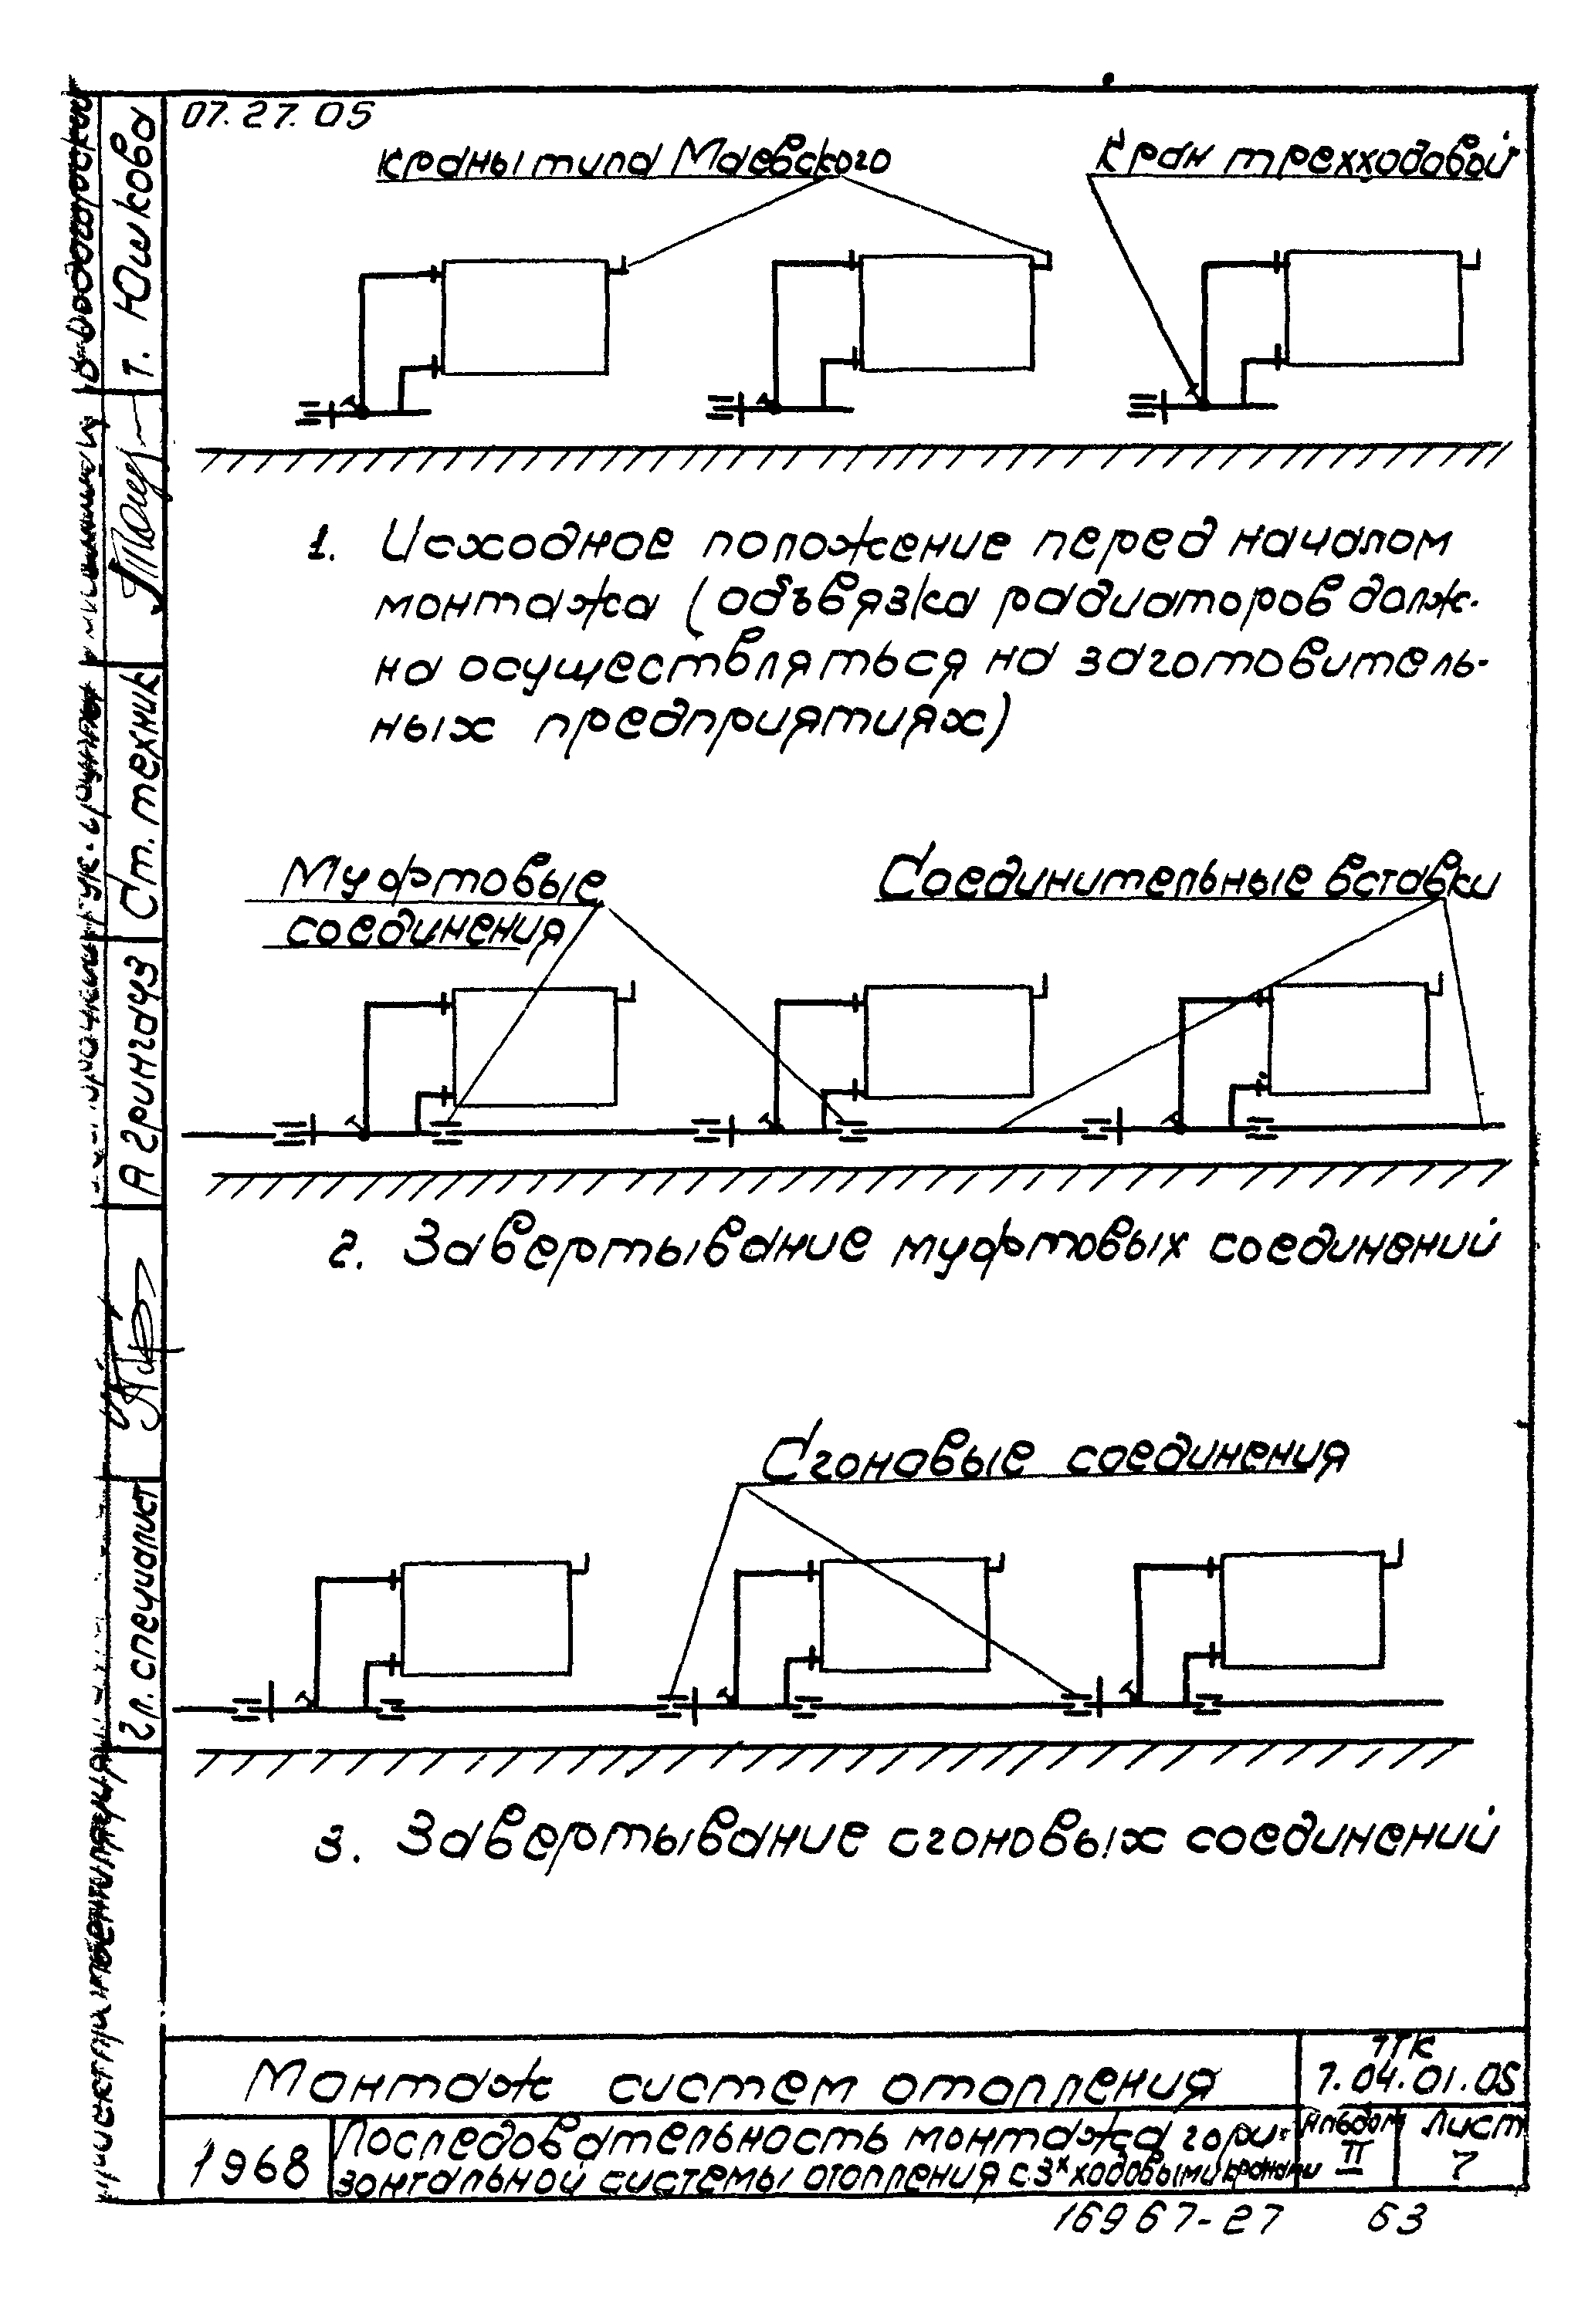 07.27.05
краны типа Маевского
Кран трехходовой
1. Исходное положение перед началом
монтажа (обьвязка радиаторов долж-
на осуществляться на заготовитель-
ных предприятиях)
Муфтовые
соединения
Соединительные вставки
2. Завертывание муфтовых соединений
Сгоновые соединения
3. Завертывание сгоновых соединений
Монтаж систем отопления
ТТК
7.04.01.05
1968
Последовательность монтажа гори-
зонтальной системы отопления с 3х ходовыми кранами
Альбом
II
Лист
7
16967-27 63
Т. Юшкова
Ст. техник
А Грингауз
Гл. специалист